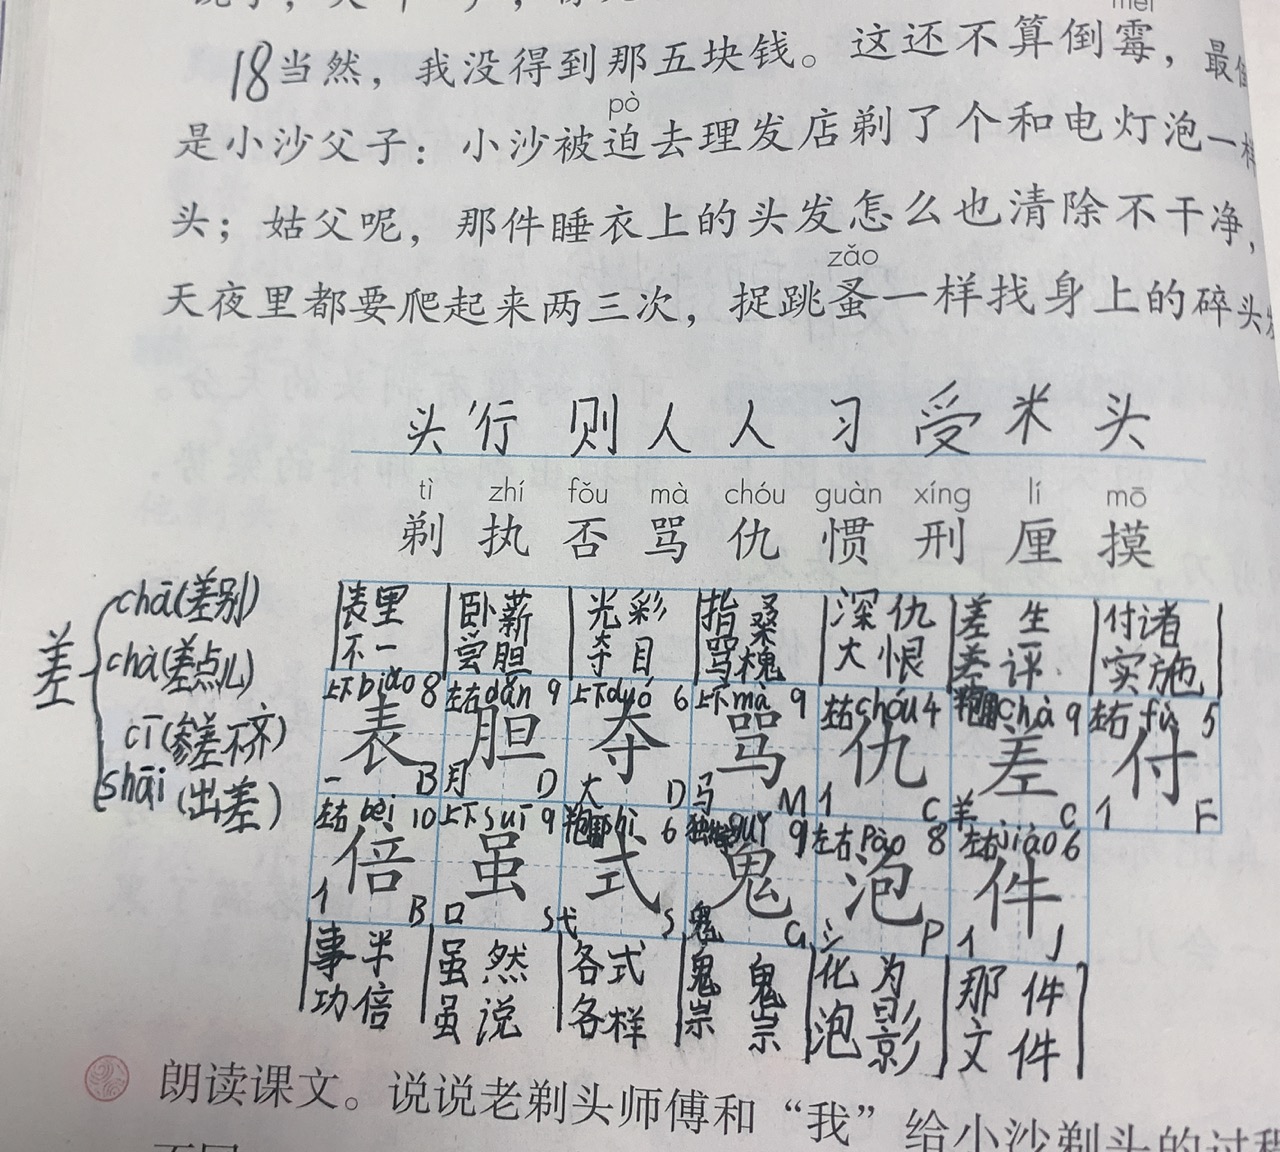 méi
18当然，我没得到那五块钱。这还不算倒霉，最
pò
是小沙父子：小沙被迫去理发店剃了个和电灯泡一样
头；姑父呢，那件睡衣上的头发怎么也清除不干净，
zǎo
天夜里都要爬起来两三次，捉跳蚤一样找身上的碎头发
头 行 则 人 人 习 受 米 头
tì zhí fǒu mà chóu guàn xíng lí mō
剃 执 否 骂 仇 惯 刑 厘 摸
差 chā(差别)
chà(差点儿)
cī(参差不齐)
shāi(出差)
表里 卧薪 光彩 指桑 深仇 差生 付诸
不一 尝胆 夺目 骂槐 大恨 差评 实施
上下biǎo8 左右dǎn9 上下duó6 上下mà9 左右chóu4 chà9 左右fù5
表 胆 夺 骂 仇 差 付
一B 月D 大D 马M 亻C 羊C 亻F
左右bèi10 上下suī9 shì6 guǐ9 左右pào8 左右jiào6
倍 虽 式 鬼 泡 件
亻B 口S 弋S 鬼G 氵P 亻J
事半 虽然 各式 鬼鬼 化为 那件
功倍 虽说 各样 祟祟 泡影 文件
朗读课文。说说老剃头师傅和“我”给小沙剃头的过程